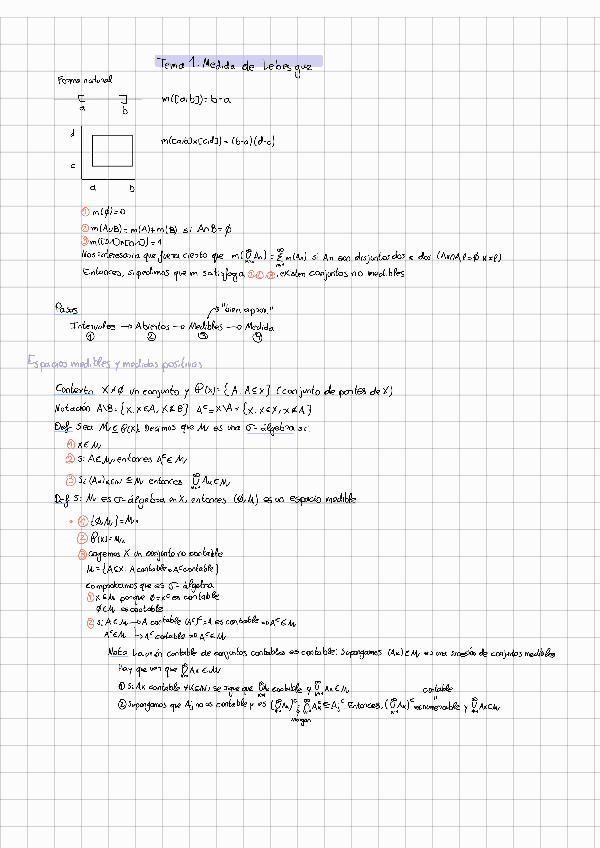 Tema 1. Medida de Lebesgue
Forma natural
a b
m([a,b]) = b-a
d
c
a b
m([a,b]x[c,d]) = (b-a)(d-c)
① m(∅)=0
② m(A∪B) = m(A)+m(B) si A∩B = ∅
③ m([0,1]x[0,1]) = 1
Nos interesaría que fuera cierto que m(⋃An) = Σ m(An) si An son disjuntos dos a dos (Ak∩Al=∅ k≠l)
Entonces, si pedimos que m satisfaga ①,②,③, existen conjuntos no medibles
Pasos
"bien aprox."
Intervalos → Abiertos → Medibles → Medida
① ② ③ ④
Espacios medibles y medidas positivas
Contexto X≠∅ un conjunto y P(X) = {A: A⊆X} (conjunto de partes de X)
Notación A\B = {x: x∈A, x∉B} Aᶜ = X\A = {x: x∈X, x∉A}
Def Sea M⊆P(X). Decimos que M es una σ-álgebra si:
① X∈M
② Si A∈M, entonces Aᶜ∈M
③ Si (Ak)k∈N ⊆ M entonces ⋃Ak∈M
Def Si M es σ-álgebra en X, entonces (∅,M) es un espacio medible
① {∅,M} = M
② P(X) = M
③ cogemos X un conjunto no contable
M = {A⊆X: A contable o Aᶜ contable}
comprobamos que es σ-álgebra
① X∈M porque ∅=Xᶜ es contable
∅∈M es contable
② Si A∈M → A contable (Aᶜ)ᶜ=A es contable ⇒ Aᶜ∈M
Aᶜ∈M → Aᶜ contable ⇒ Aᶜ∈M
Nota La unión contable de conjuntos contables es contable: Supongamos (Ak)∈M es una sucesión de conjuntos medibles
Hay que ver que ⋃Ak∈M
① Si Ak contable ∀k∈N se sigue que ⋃Ak contable y ⋃Ak∈M
contable
② Supongamos que Aj no es contable y es (⋃Ak)ᶜ = ⋂Akᶜ ⊆ Ajᶜ Entonces, (⋃Ak)ᶜ es numerable y ⋃Ak∈M
Morgan